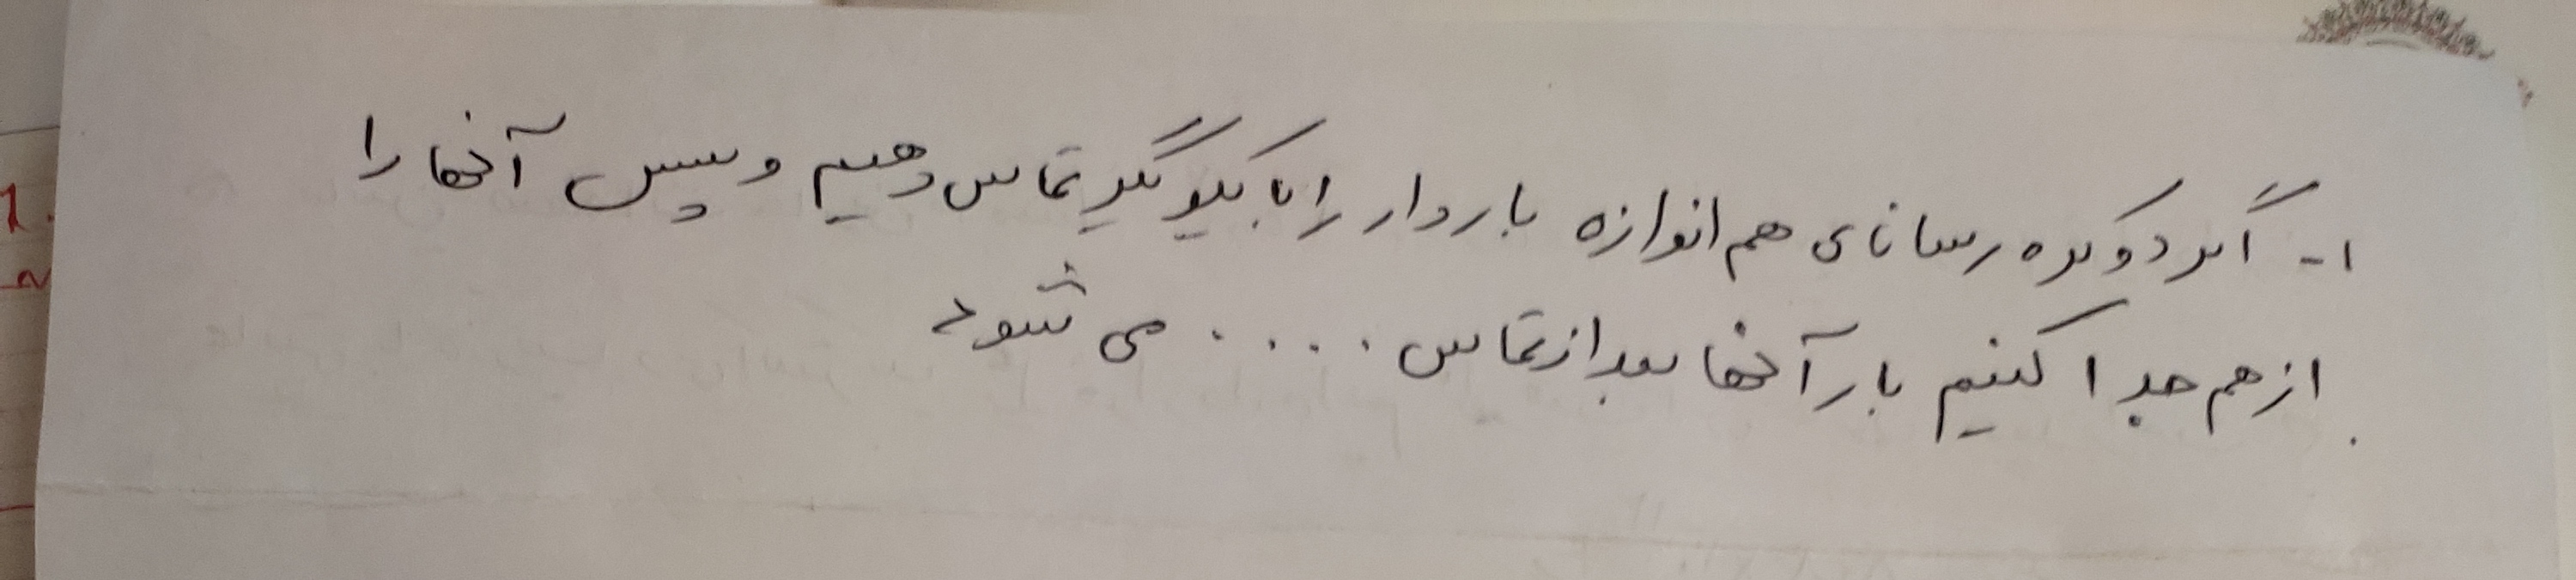 ۱- اگر دو کره رسانای هم اندازه باردار را با یکدیگر تماس دهیم و سپس آنها را
از هم جدا کنیم بار آنها بعد از تماس .... می شود